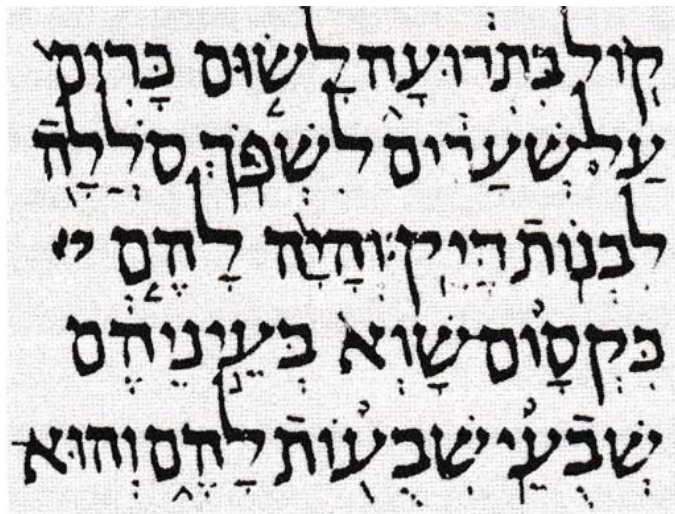 קוֹל בִּתְרוּעָה לָשׂוּם כָּרִים
עַל שְׁעָרִים לִשְׁפֹּךְ סֹלְלָה
לִבְנוֹת דָּיֵק׃ וְהָיָה לָהֶם
כִּקְסָום שָׁוְא בְּעֵינֵיהֶם
שְׁבֻעֵי שְׁבֻעוֹת לָהֶם וְהוּא